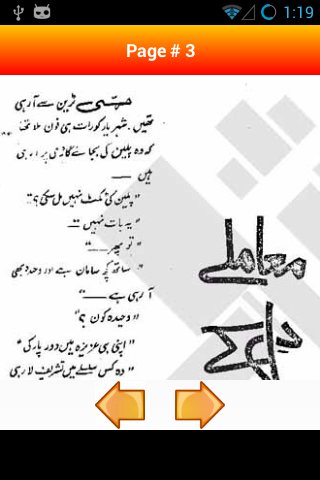 1:19
Page # 3
ٹرین سے آ رہی
تھیں۔ شہریار کو رات ہی فون ملا تھا
کہ وہ پلین کی بجائے گاڑی پر آ رہی
ہیں ——
"پلین کی ٹکٹ نہیں مل سکی؟"
"یہ بات نہیں —
تو پھر ——"
ساتھ کچھ سامان ہے اور وحیدہ بھی
آ رہی ہے ——"
"وحیدہ کون؟"
"اپنی ہی عزیزہ ہیں دور پار کی"
"وہ کس سلسلے میں تشریف لا رہی
معاملے